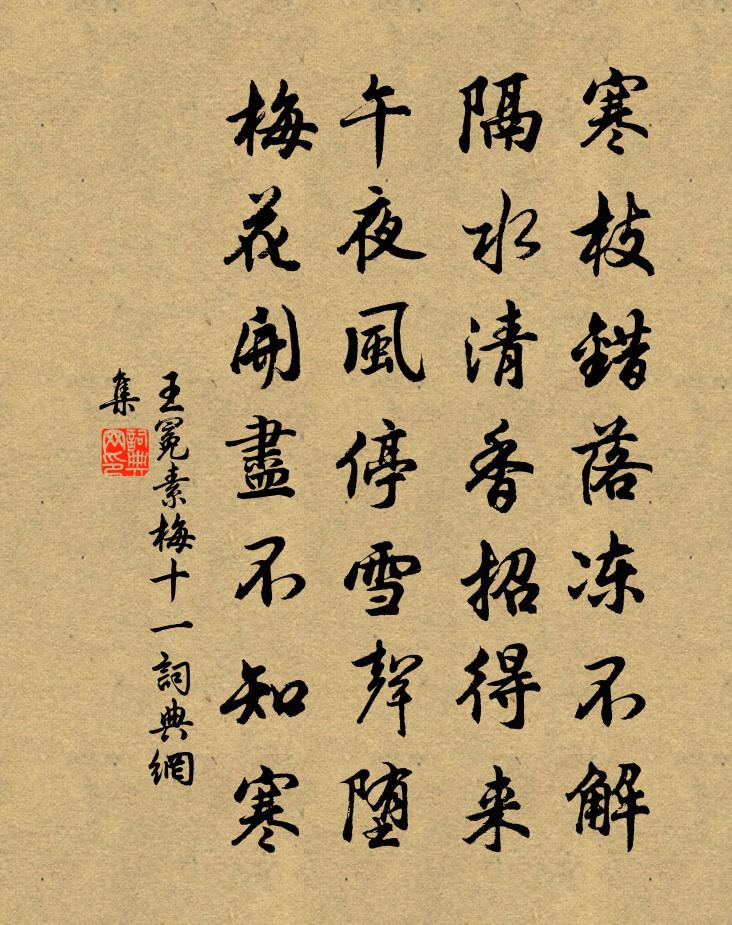 寒枝錯落冻不解
隔水清香招得来
午夜風停雪聲堕
梅花開盡不知寒
王冕素梅十一詞典網
集
詞典網印